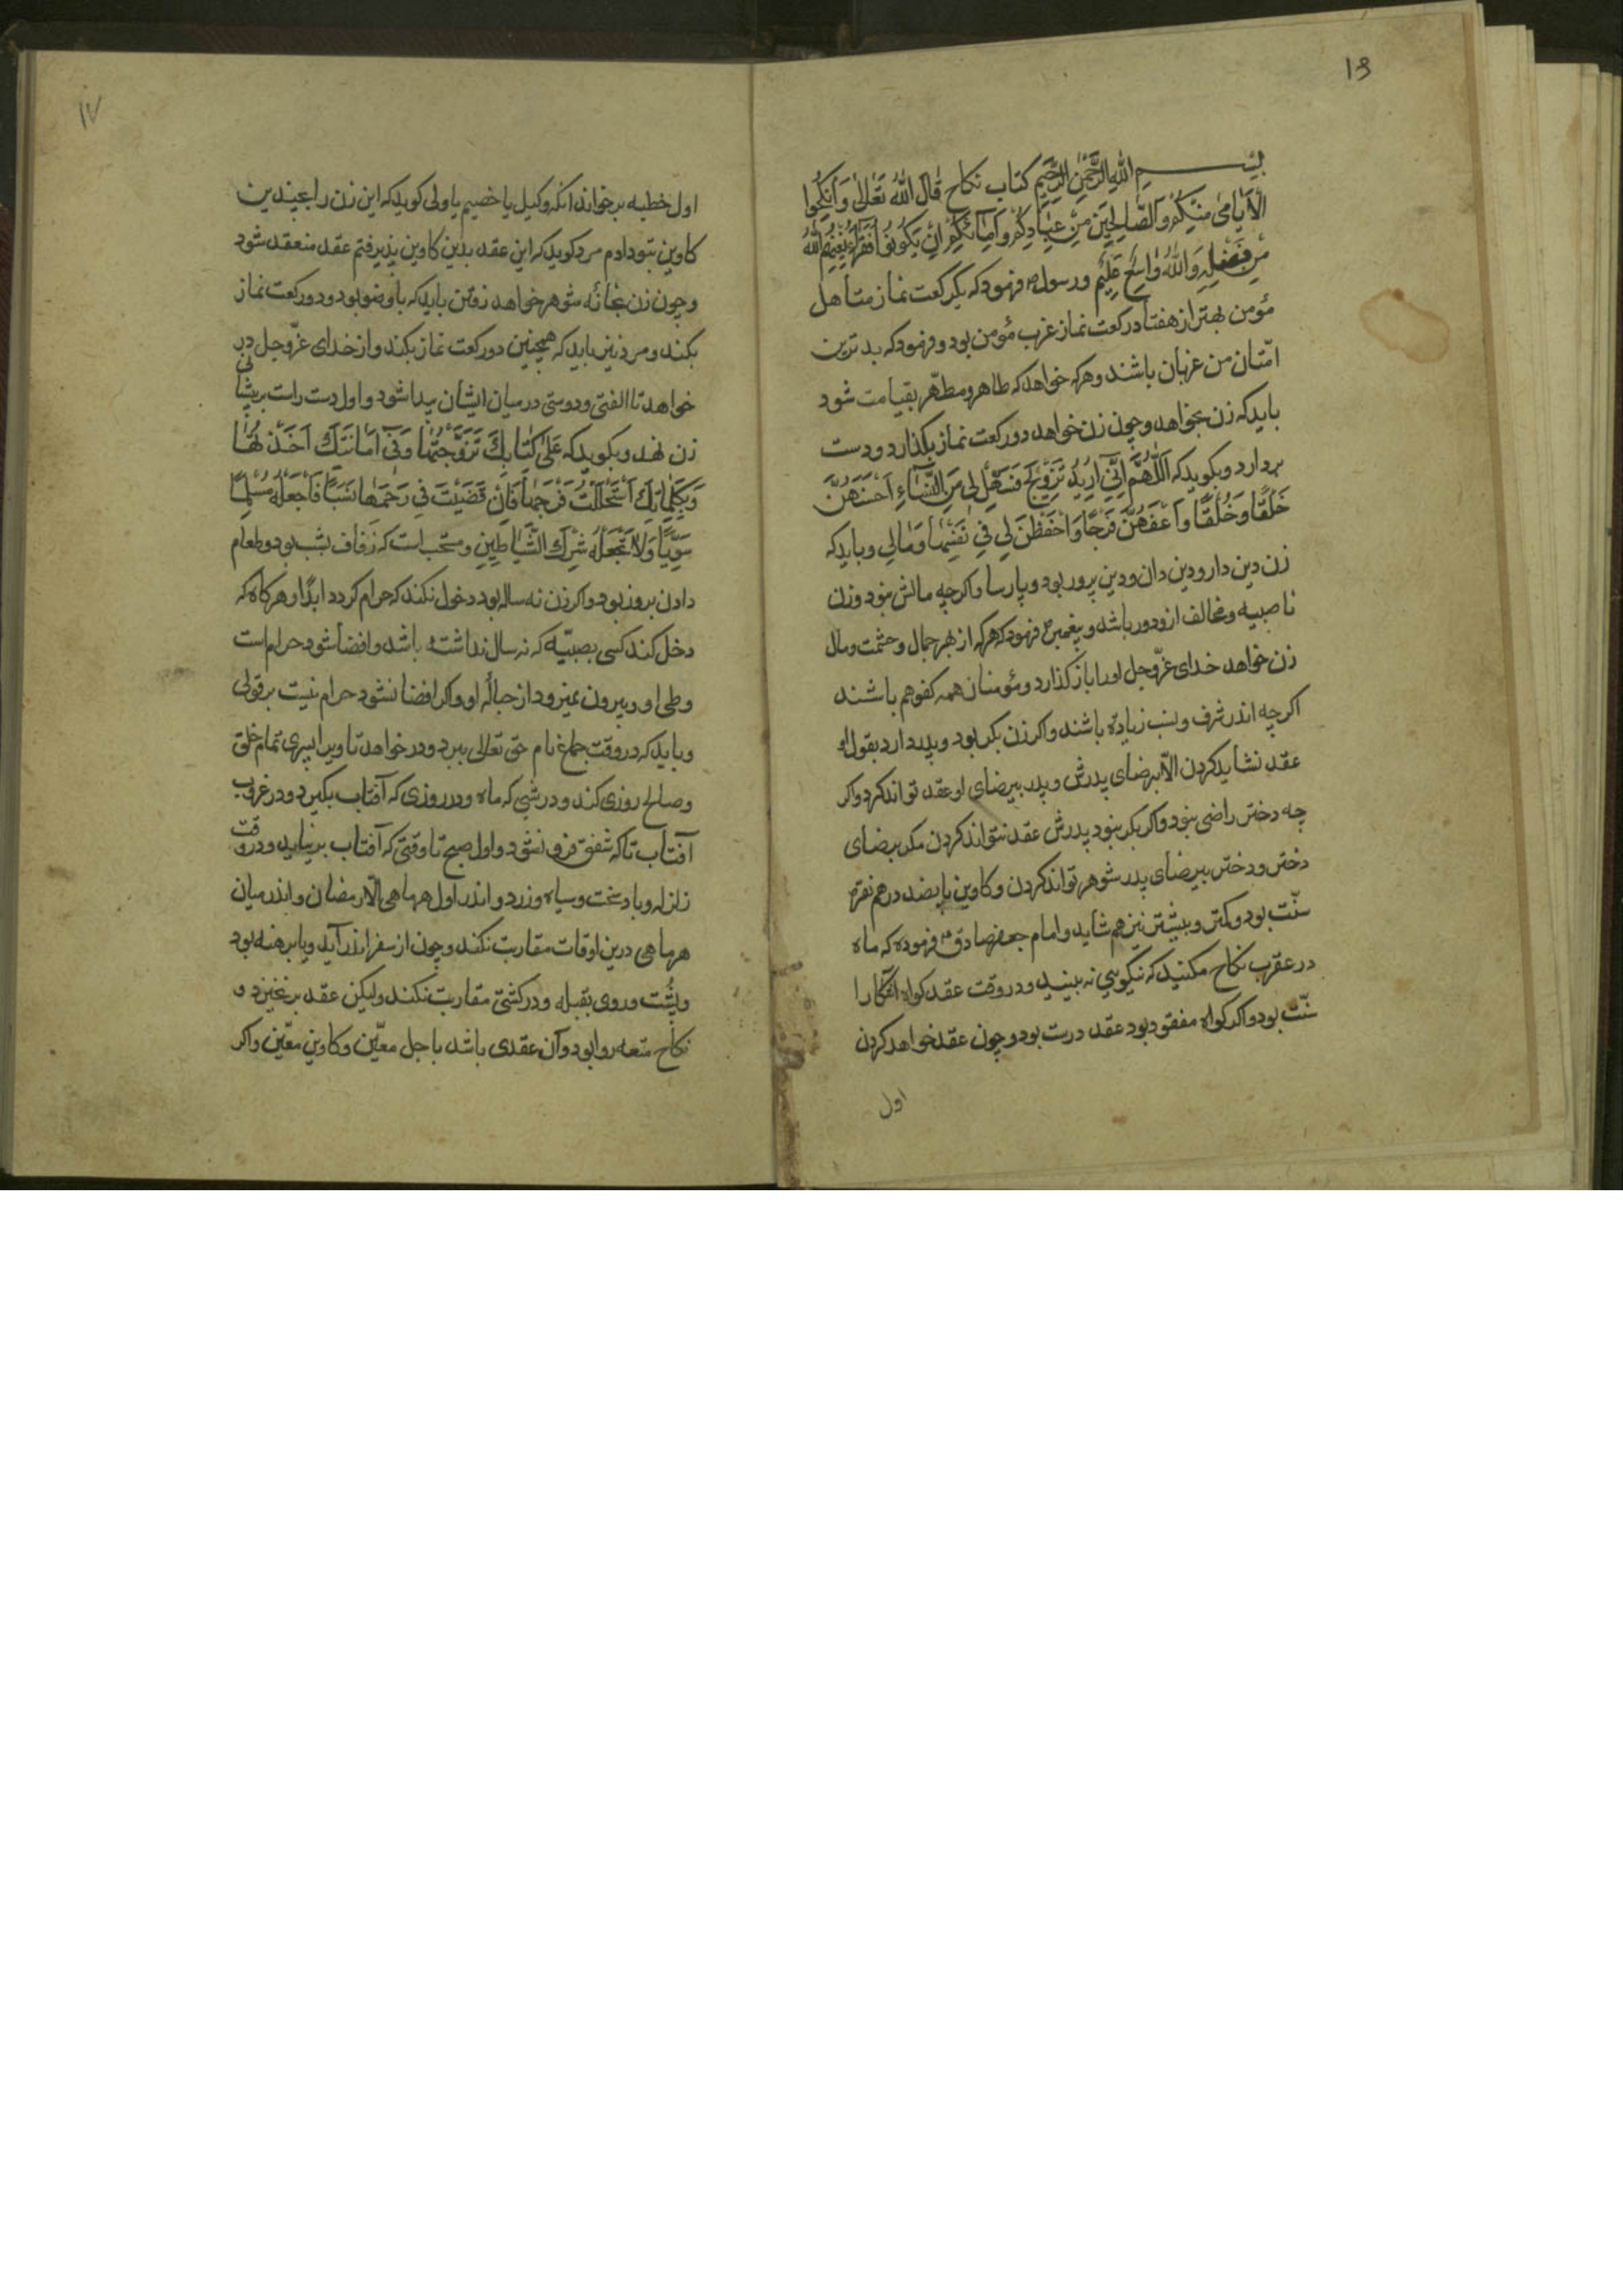 13
بسم الله الرحمن الرحیم کتاب نکاح قال الله تعالی وانکحوا
الایامی منکم والصالحین من عبادکم وامائکم ان یکونوا فقراء یغنهم الله
من فضله والله واسع علیم ورسول فرمود که یکرکعت نماز متأهل
مؤمن بهتر از هفتاد رکعت نماز عزب مؤمن بود و فرمود که بدترین
امّتان من عزبان باشند و هرکه خواهد که طاهر و مطهّر بقیامت شود
باید که زن بخواهد و چون زن خواهد دو رکعت نماز بکذارد و دست
بردارد و بکوید که اللهم انی ارید تزویج فسهّل لی من النساء احسنهن
خَلقًا وخُلقًا واعفهنّ فرجًا واحفظن لی فی نفسها ومالی و باید که
زن دین دار و دین دان و دین پرور بود و پارسا و اکرچه مالش نبود و زن
ناصبیه و مخالف ازو دور باشد و پیغمبر فرمود که هرکه از بهر جمال و حشمت و مال
زن خواهد خدای عزّوجل اورا باز کذارد و مؤمنان همه کفو هم باشند
اکرچه اندر شرف و نسب زیاده باشند و اکر زن بکر بود و پدر دارد بقول او
عقد نشاید کردن الّا برضای پدرش و پدر بیرضای او عقد تواند کرد و اکر
چه دختر راضی نبود و اکر بکر نبود پدرش عقد نتواند کردن مکر برضای
دختر و دختر بیرضای پدر شوهر تواند کردن و کاوین پانصد درهم نقره
سنّت بود و کمتر و بیشتر نیز هم شاید و امام جعفر صادق فرموده که ماه
در عقرب نکاح مکنید که نیکویی نه بینید و در وقت عقد کواه آشکارا
سنّت بود و اکر کواه مفقود بود عقد درست بود و چون عقد خواهد کردن
اول
۱۷
اول خطبه برخواند آنکه وکیل یا خصیم یا ولی کوید که این زن را بچندین
کاوین بتو دادم مرد کوید که این عقد بدین کاوین پذیرفتم عقد منعقد شود
و چون زن بخانه شوهر خواهد رفتن باید که با وضو بود و دو رکعت نماز
بکند و مرد نیز باید که همچنین دو رکعت نماز بکند و از خدای عزّوجل در
خواهد تا الفتی و دوستی در میان ایشان پیدا شود و اول دست راست بر پیشانی
زن نهد و بکوید که علی کتابک تزوجتها وفی امانتک اخذتها
وبکلماتک استحللت فرجها فان قضیت فی رحمها نسبًا فاجعله مسلما
سویًا ولا تجعله شرک الشیاطین و مستحب است که زفاف بشب بود و طعام
دادن بروز بود و اکر زن نه ساله بود دخول نکند که حرام کردد ابدًا و هر کاه که
دخل کند کسی بصبیّه که نه سال نداشته باشد و افضا شود حرام است
وطی او و بیرون نمیرود از حباله او و اکر افضا نشود حرام نیست بر قولی
و باید که در وقت جماع نام حق تعالی ببرد و درخواهد تا ویرا پسری تمام خلق
و صالح روزی کند و در شبی که ماه و در روزی که آفتاب بکیرد و در غروب
آفتاب تا که شفق فرو نشود و اول صبح تا وقتی که آفتاب برنیاید و در وقت
زلزله و باد سخت و سیاه و زرد و اندر اول هر ماهی الّا رمضان و اندر میان
هر ماهی درین اوقات مقاربت نکند و چون از سفر اندر آید و یا برهنه بود
و پشت و روی بقبله و در کشتی مقاربت نکند ولیکن عقد برنخیزد و
نکاح متعه روا بود و آن عقدی باشد باجل معیّن و کاوین معیّن و اکر